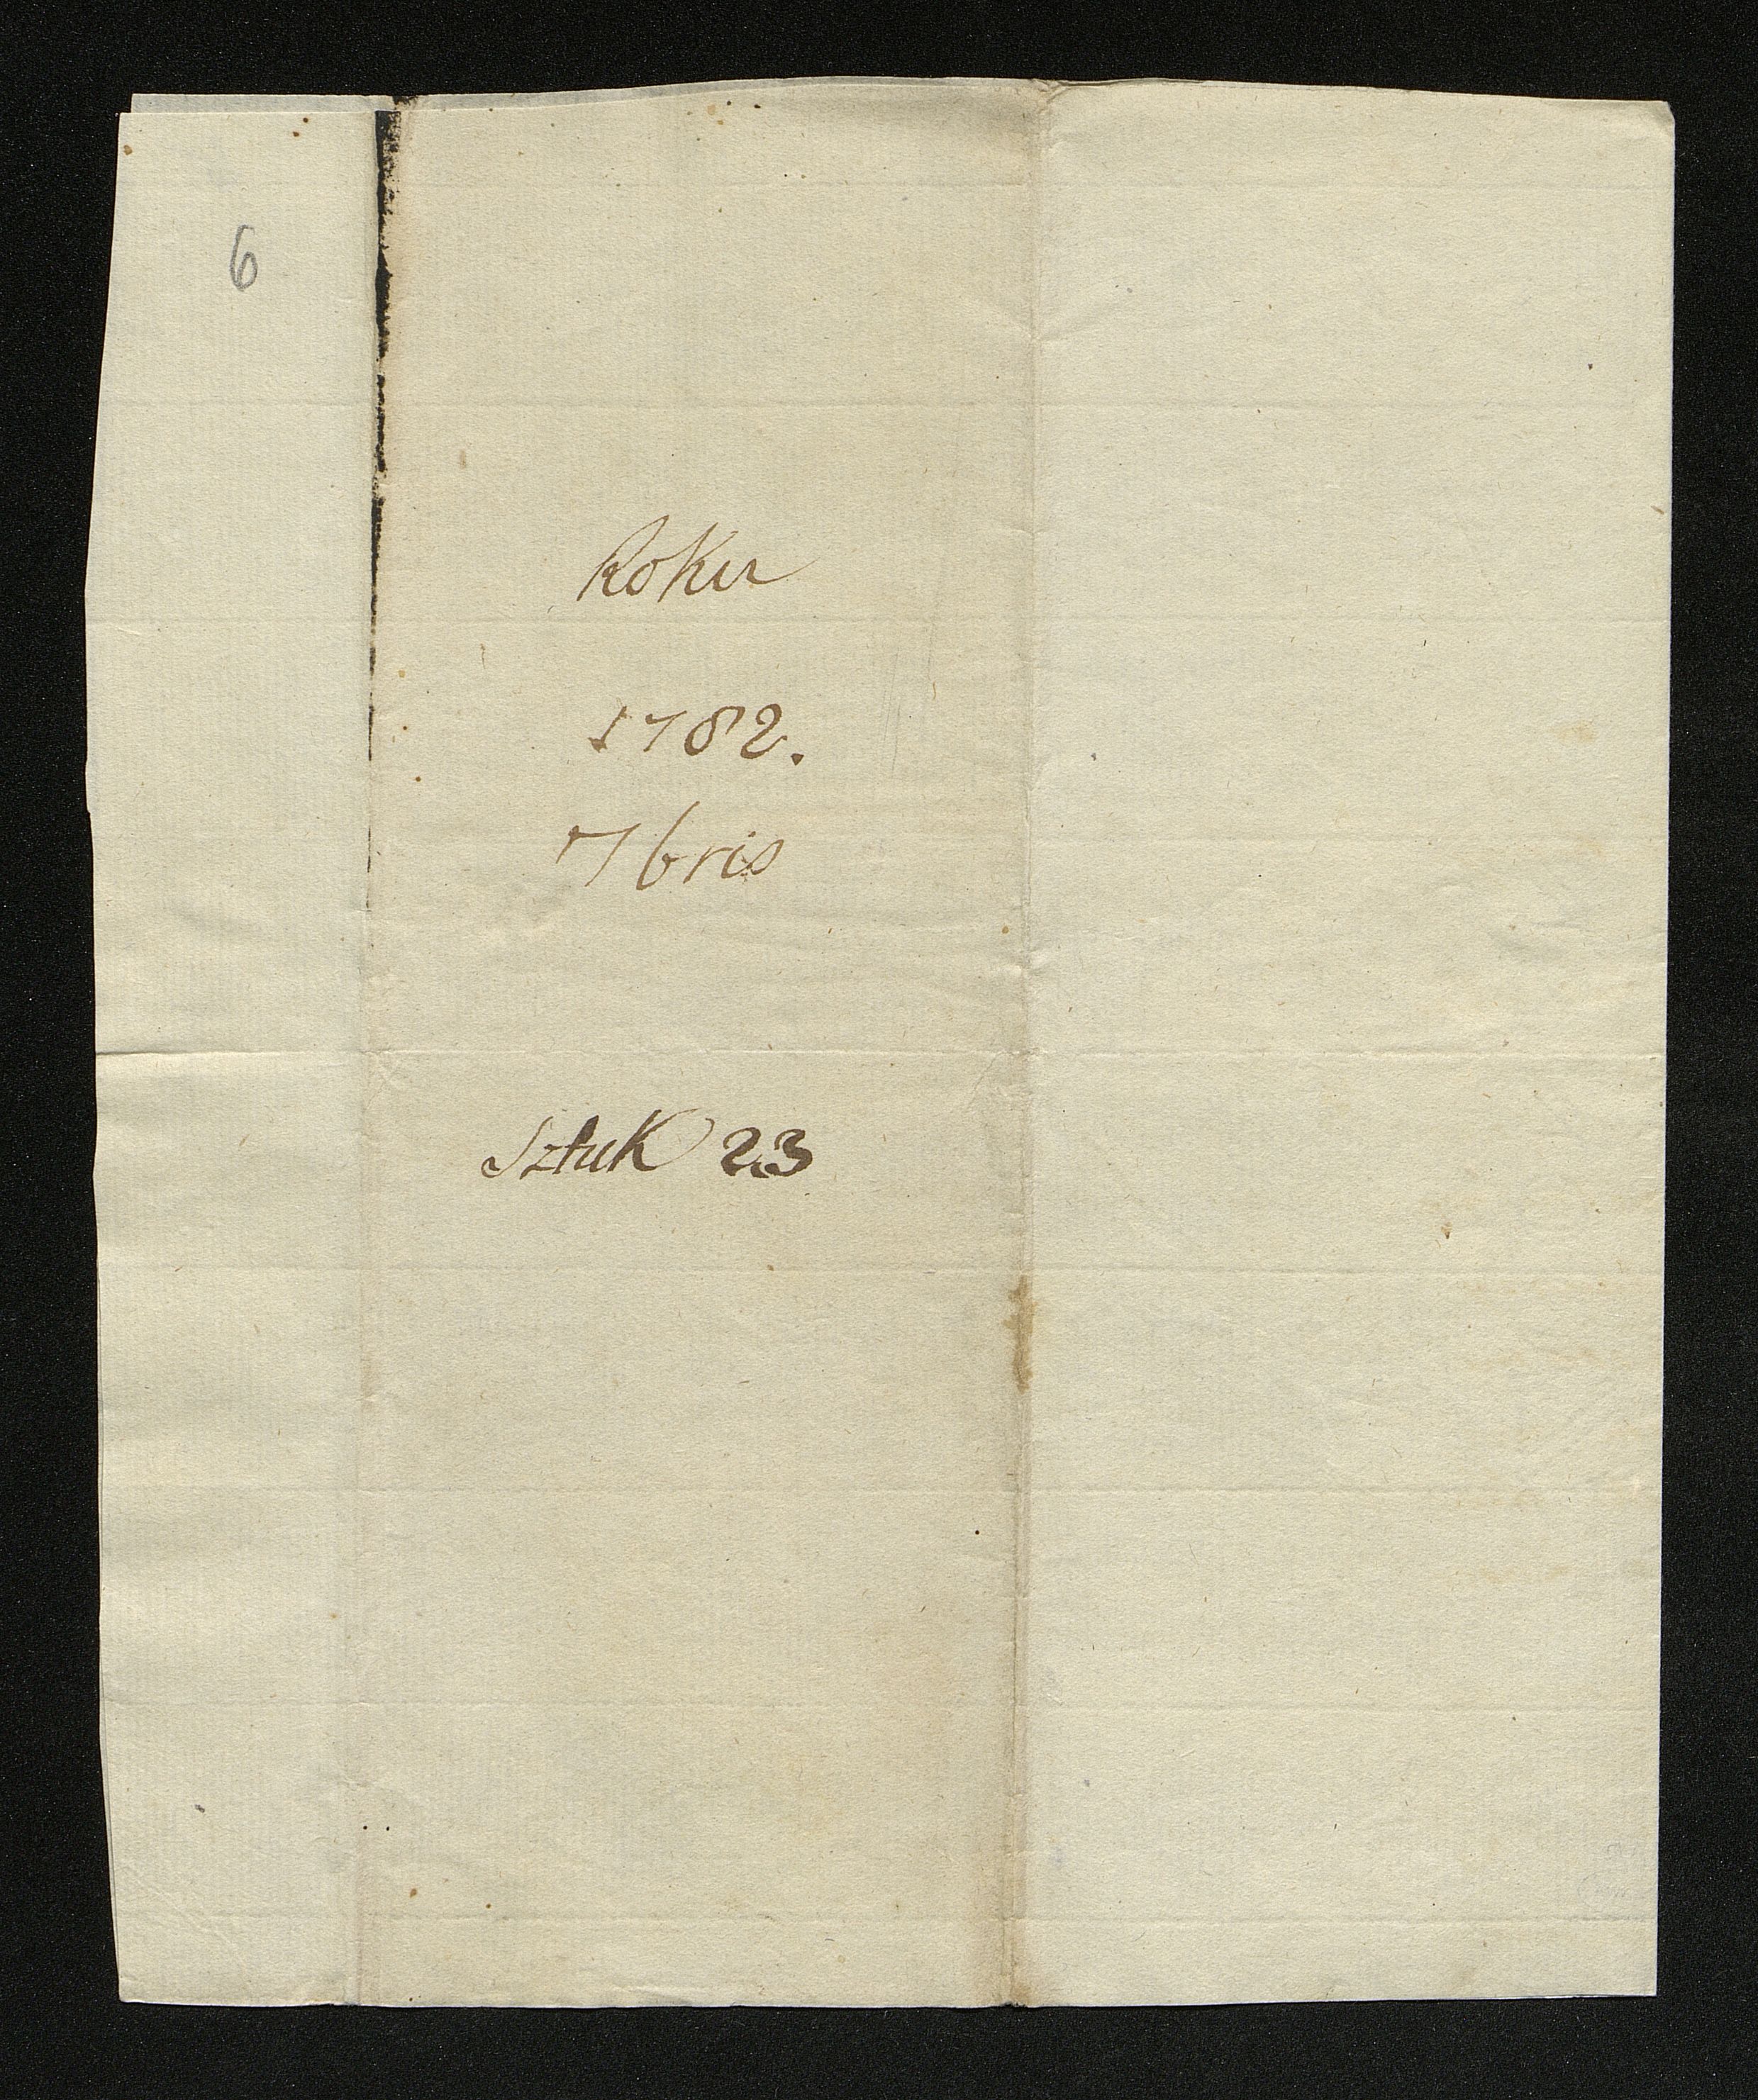 6
Roku
1782.
7bris
Sztuk 23